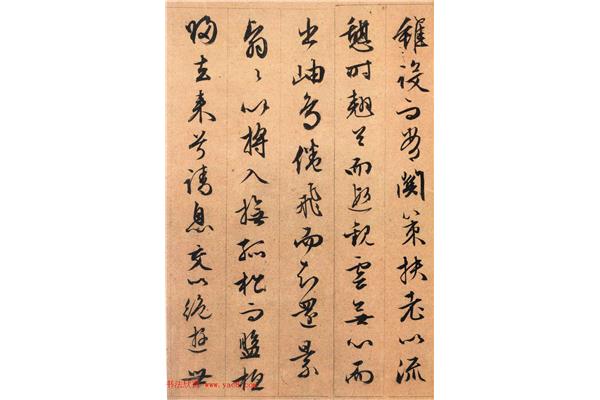 雖設而常關策扶老以流
憩時翹首而遐觀雲無心而
出岫鳥倦飛而知還景
翳翳以將入撫孤松而盤桓
歸去來兮請息交以絕遊世
书法欣赏 www.yac8.com